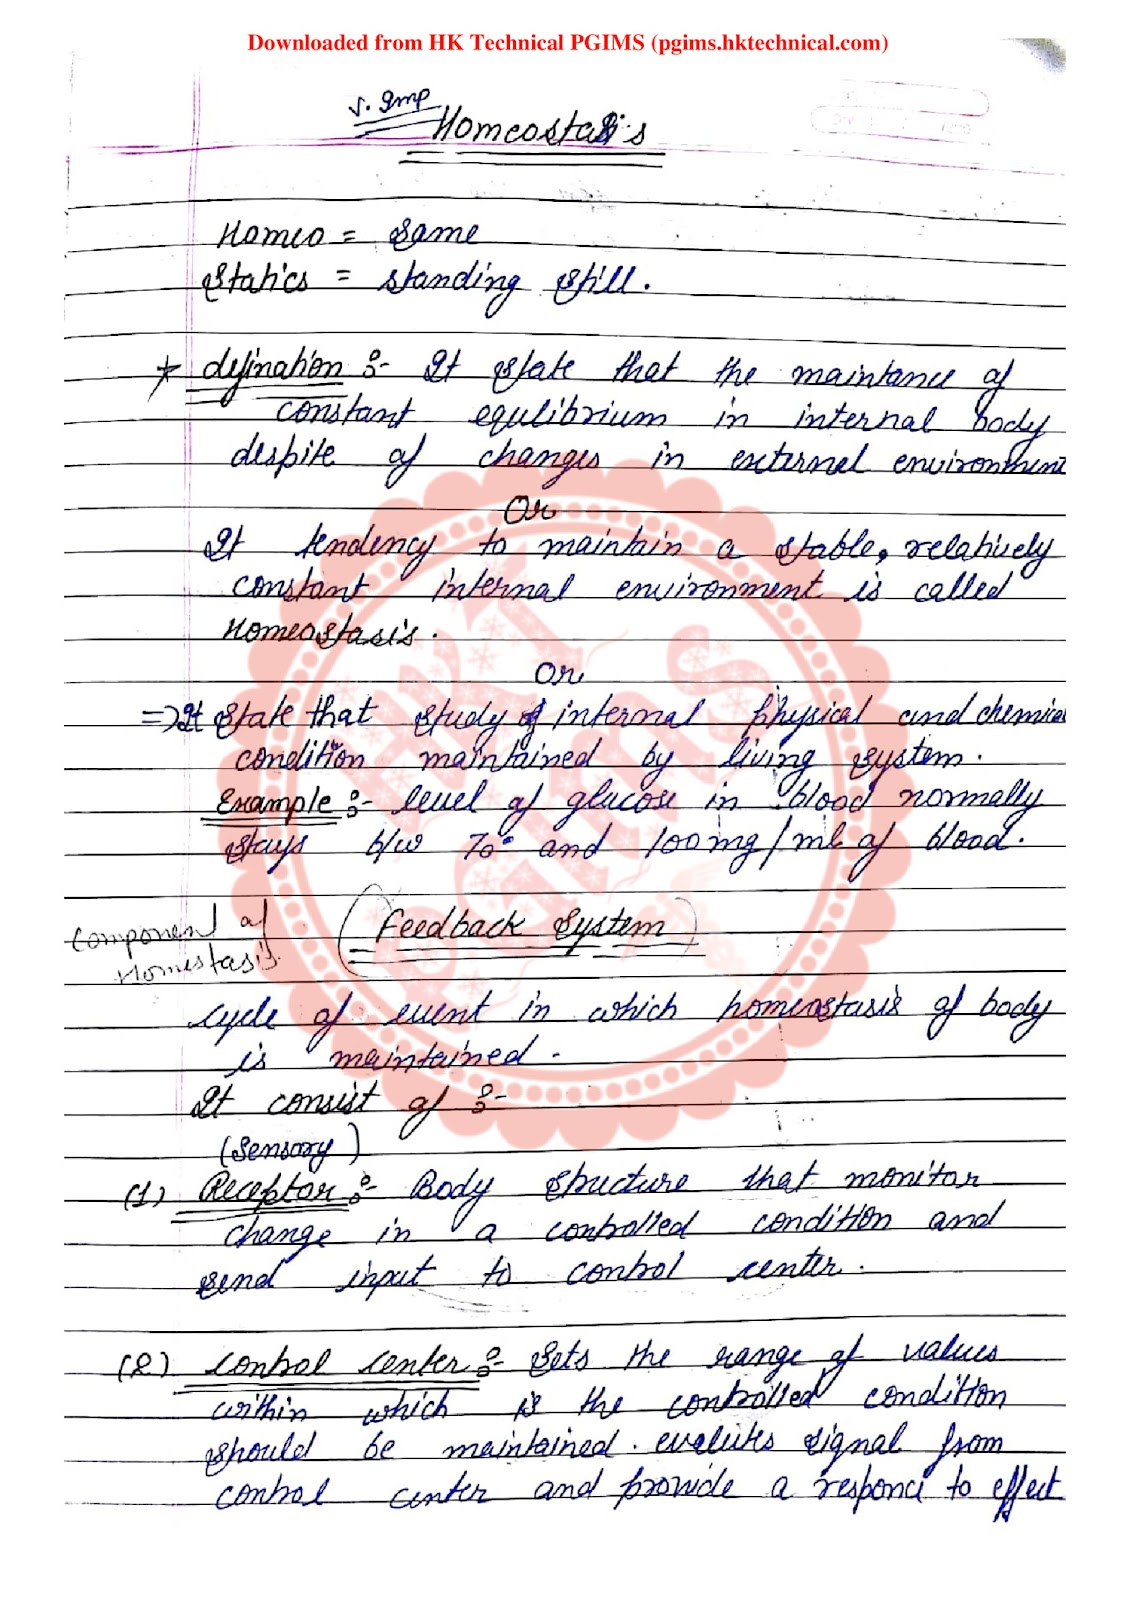 Downloaded from HK Technical PGIMS (pgims.hktechnical.com)
v. Imp
Homeostasis
Homeo = Same
Statics = standing still.
* defination :- It state that the maintance of
constant equlibrium in internal body
despite of changes in externel environment
Or
It tendency to maintain a stable, relatively
constant internal environment is called
Homeostasis.
Or
=> It state that study of internal physical and chemical
condition maintained by living system.
Example :- level of glucose in blood normally
stays b/w 70 and 100 mg/ml of blood.
Component of
Homestasis
(Feedback System)
cycle of event in which homeostasis of body
is maintained.
It consist of :-
(Sensory)
(1) Receptor :- Body structure that monitor
change in a controlled condition and
send input to control center.
(2) control center :- Sets the range of values
within which is the controlled condition
should be maintained. evalutes signal from
control center and provide a responce to effect